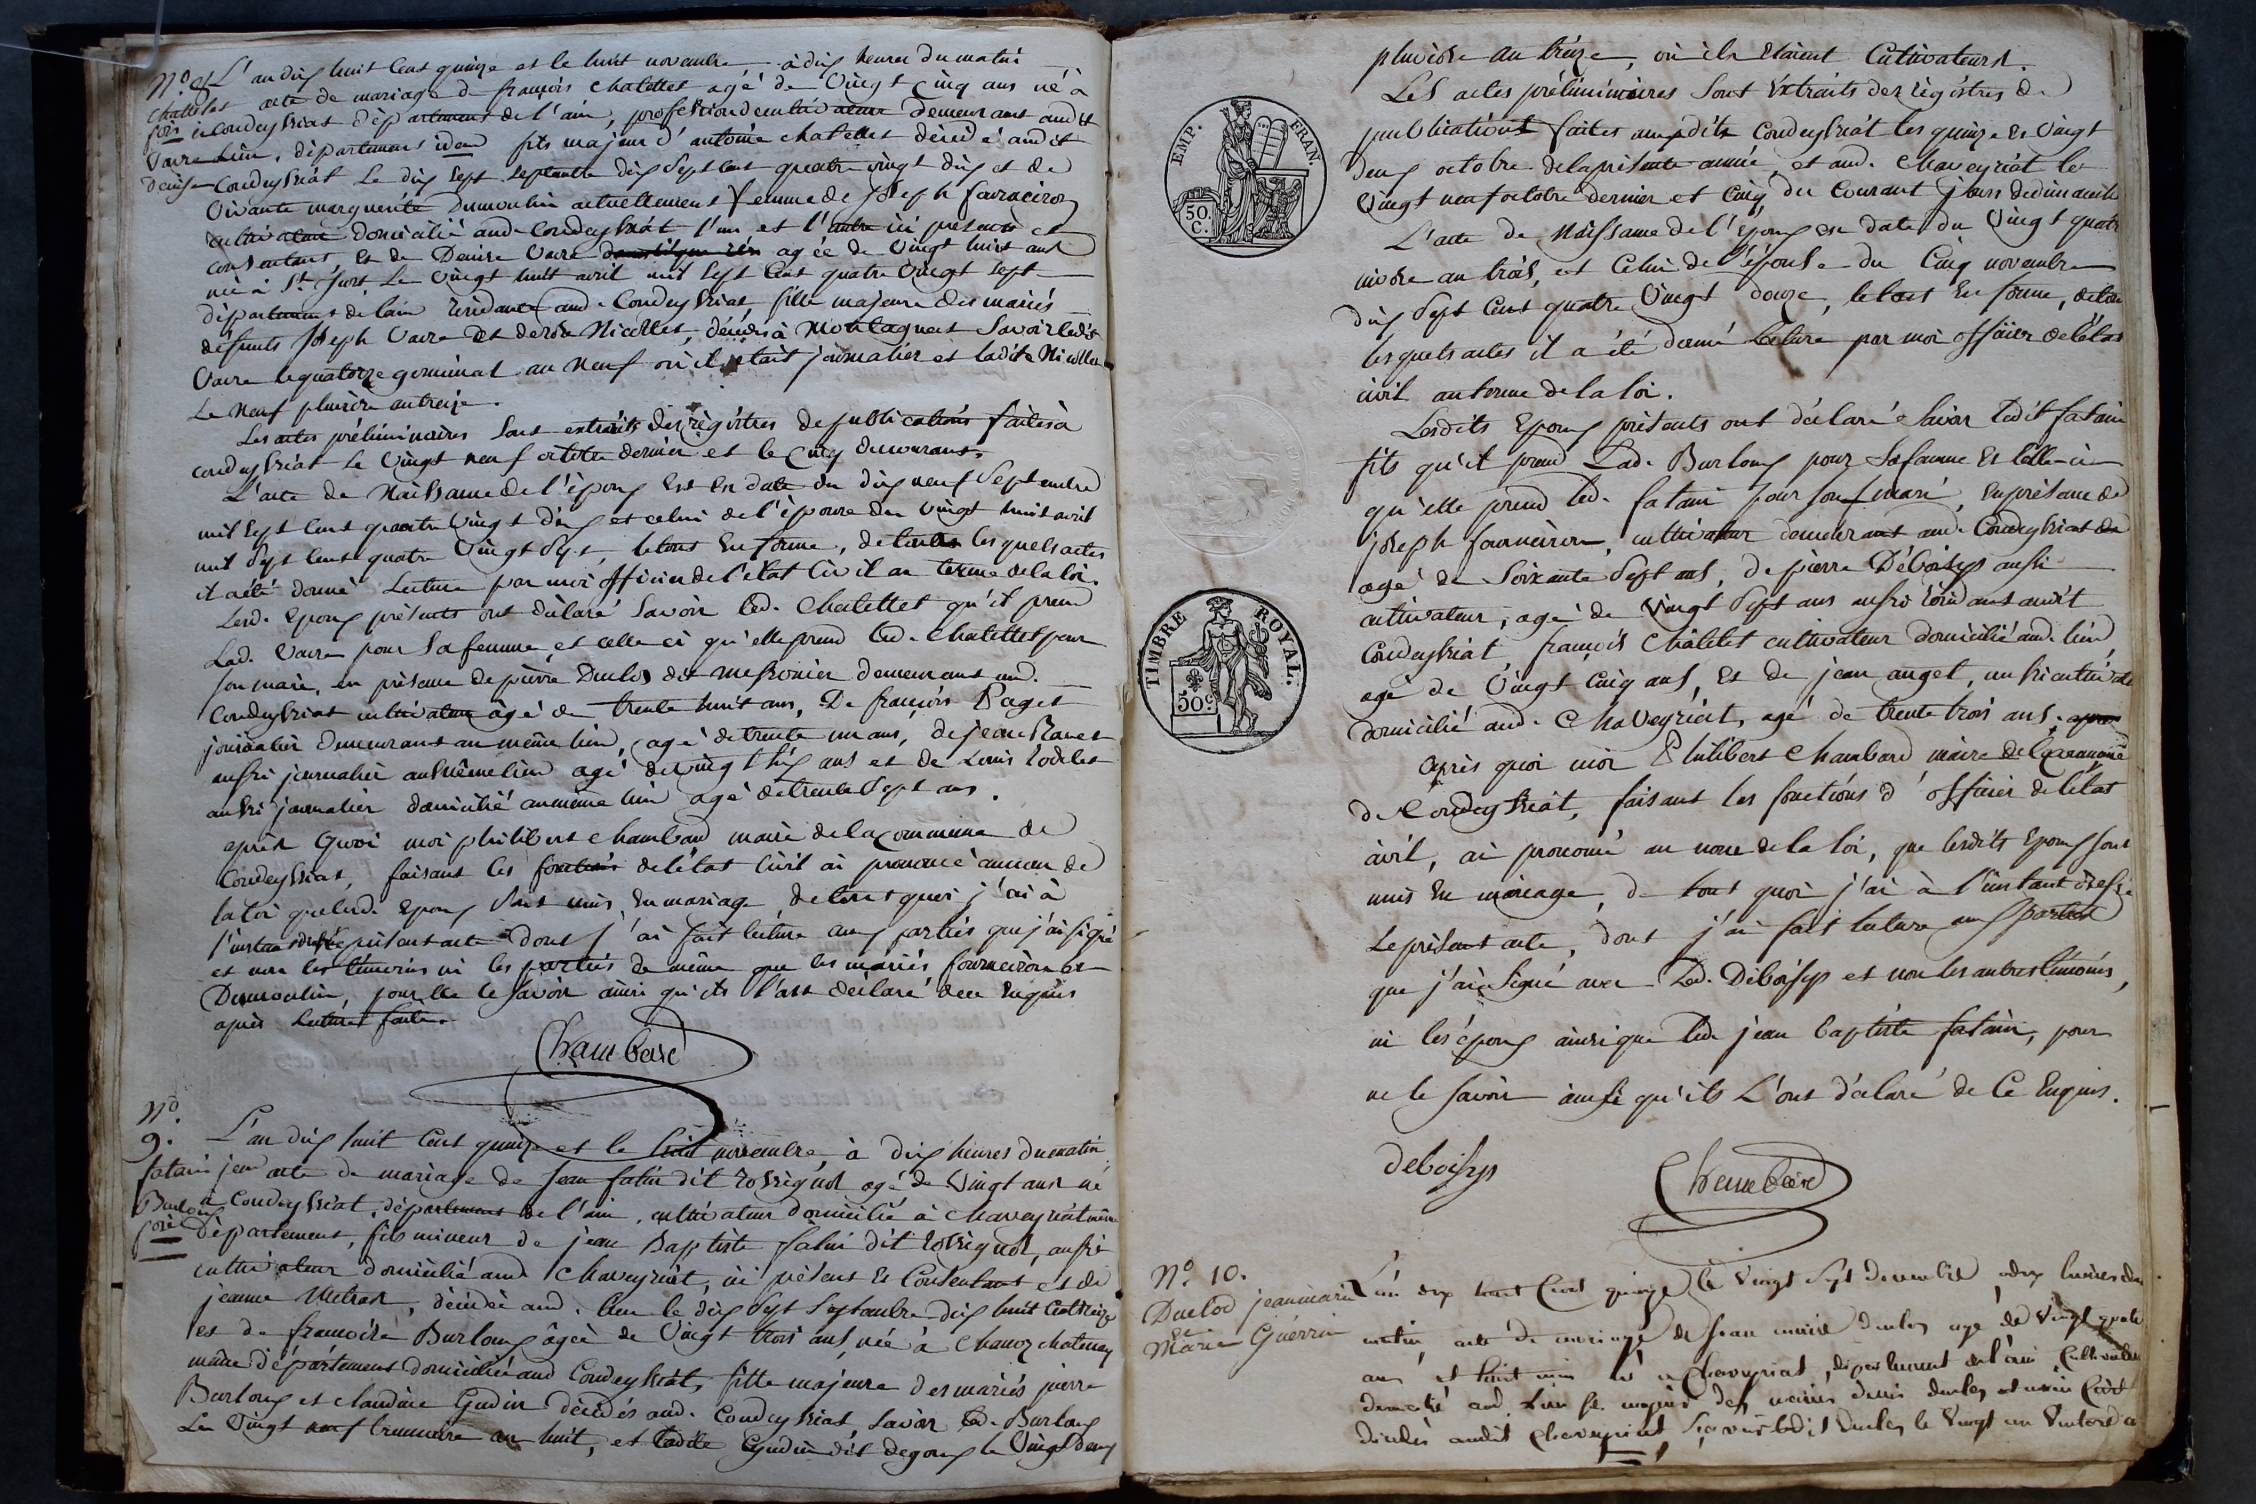 N.º 8
chatellet
fois
Vaire
denise
L'an dix huit Cent quinze et le huit novembre à dix heures du matin
acte de mariage de françois chatellet agé de Vingt Cinq ans né à
Condeyssiat département de l'ain, profession de cultivateur demeurant audit
lieu, département idem fils majeur d'antoine chatellet décédé audit
Condeyssiat Le dix sept septembre dix sept cent quatre vingt dix et de
Vivante marguerite Dumoulin actuellement femme de Joseph fourneiron
cultivateur domicilié aud. Condeyssiat l'un et l'autre ici présents et
consentant, Et de Denise Vaire agée de Vingt huit ans
née à St Just Le vingt huit avril mil sept Cent quatre Vingt sept
département de l'ain résidante aud. Condeyssiat fille majeure des mariés
défunts Joseph Vaire et Nicollet, décédés à Montagnat Savoir ledit
Vaire le quatorze germinal an neuf où il était journalier et ladite Nicollet
Le neuf pluviose an treize.
Les actes préliminaires sont extraits des régistres de publications faites à
condeyssiat Le Vingt neuf octobre dernier et le Cinq du courant.
L'acte de Naissance de l'époux Est en date du dix neuf Septembre
mil sept cent quatre Vingt dix et celui de l'épouse du Vingt huit avril
mil sept cent quatre Vingt sept, le tout en forme, de tous lesquels actes
il a été donné Lecture par moi officier de l'état Civil au terme de la loi.
Lesd. Epoux présents ont déclaré Savoir led. Chatellet qu'il prend
Lad. Vaire pour sa femme et celle ci qu'elle prend led. chatellet pour
son mari, en présence de pierre Duclos dit demeurant aud.
Condeyssiat cultivateur âgé de trente huit ans, De françois Paget
journalier demeurant au même lieu, agé de trente un ans, de jean Ravet
aussi journalier au même lieu agé de vingt six ans et de Louis rodillet
aussi journalier domicilié au même lieu agé de trente Sept ans.
après Quoi moi philibert Chambard maire de la commune de
Condeyssiat, faisant les fonctions de l'état Civil ai prononcé au nom de
la loi que lesd. Epoux sont unis en mariage, de tout quoi j'ai à
l'instant dressé présent acte Dont j'ai fait lecture aux parties que j'ai signé
et non les témoins ni les parties de même que les mariés fourneiron et
Dumoulin, pour ne le savoir ainsi qu'ils l'ont déclaré de ce Enquis
après Lecture faite.
Chambard
N.º
9.
fatain jean
Burloux
L'an dix huit Cent quinze et le huit novembre, à dix heures du matin
acte de mariage de Jean fatin dit rossignol agé de Vingt ans né
à Condeyssiat, département de l'ain, cultivateur domicilié à Chaveyriat même
département, fils mineur de jean Baptiste fatin dit rossignol, aussi
cultivateur domicilié aud. Chaveyriat, ici présent et Consentant et de
jeanne Metras, décédée aud. lieu le dix sept septembre dix huit Cent treize
et de francoise Burloux âgée de Vingt trois ans, née à Chanoz chatenay
même département domiciliée aud Condeyssiat, fille majeure des mariés pierre
Burloux et claudine Gudin décédés aud. Condeyssiat, Savoir led. Burloux
Le Vingt neuf brumaire an huit, et ladite Gudin dit degoux le Vingt deux
pluviose an treize, où ils étaient Cultivateurs.
Les actes préliminaires sont Extraits des régistres de
publications faites auxdits Condeyssiat les quinze et Vingt
deux octobre de la présente année, et aud. Chaveyriat le
Vingt neuf octobre dernier et Cinq du Courant jours de dimanche
L'acte de Naissance de l'Epoux en date du Vingt quatre
nivose an trois, et Celui de l'épouse du Cinq novembre
dix Sept Cent quatre Vingt douze, le tout En forme, de tous
lesquels actes il a été donné lecture par moi officier de l'état
civil au terme de la loi.
Lesdits Epoux présents ont déclaré Savoir ledit fatain
fils qu'il prend Lad. Burloux pour sa femme Et celle-ci
qu'elle prend led. fatain pour son mari, En présence de
joseph fourneiron, cultivateur demeurant aud. Condeyssiat
agé de Soixante Sept ans, de pierre Déboisys aussi
cultivateur, agé de Vingt Sept ans aussi résidant audit
Condeyssiat françois Châtelet cultivateur domicilié aud. lieu
agé de Vingt Cinq ans, Et de jean auget, aussi cultivateur
domicilié aud. Chaveyriat, agé de trente trois ans.
après quoi moi Philibert Chambard maire de la commune
de Condeyssiat, faisant les fonctions d'officier de l'état
civil, ai prononcé au nom de la loi, que lesdits Epoux sont
unis En mariage, de tout quoi j'ai à l'instant dressé
Le présent acte, dont j'ai fait lecture aux parties
que j'ai Signé avec Led. Déboisys et non les autres témoins,
ni les époux ainsi que led. jean baptiste fatain, pour
ne le Savoir ainsi qu'ils L'ont déclaré de Ce Enquis.
deboisys
Chambard
EMP. FRAN.
50.
C.
TIMBRE ROYAL.
50 C.
N.º 10.
Duclod jeanmarie
et
Marie Guérrin
L'an dix huit Cent quinze le Vingt Sept décembre, à dix heures du
matin, acte de mariage de Jean marie duclos agé de Vingt quatre
ans et huit mois né à Chaveyriat, département de l'ain Cultivateur
domicilié aud. Lieu fils majeur des mariés denis duclos et
décédés audit Chaveyriat, Sçavoir ledit duclos le Vingt un